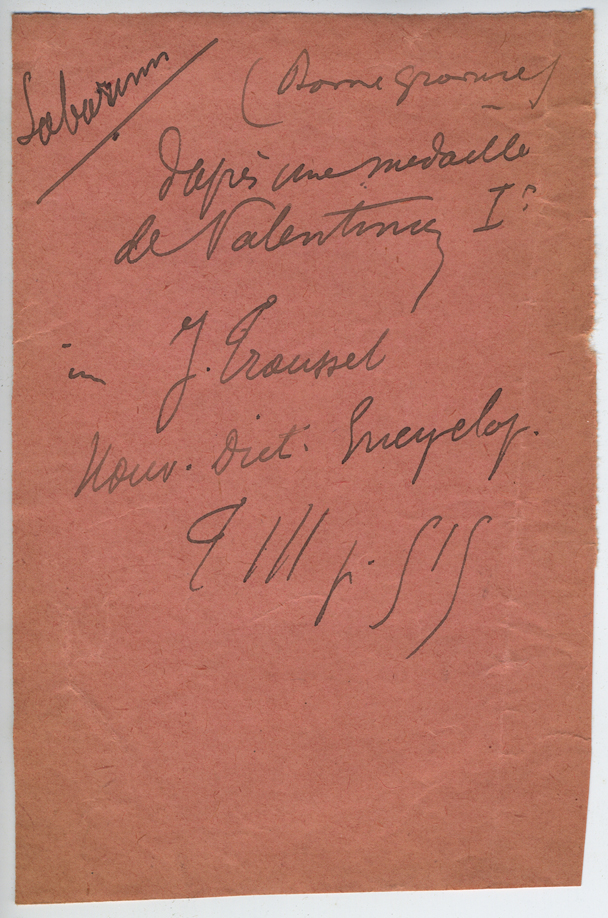 Labarum
(Bonne gravure)
d'après une médaille
de Valentinien Ier
in J. Trousset
Nouv. Dict. Encyclop.
T III p. 515